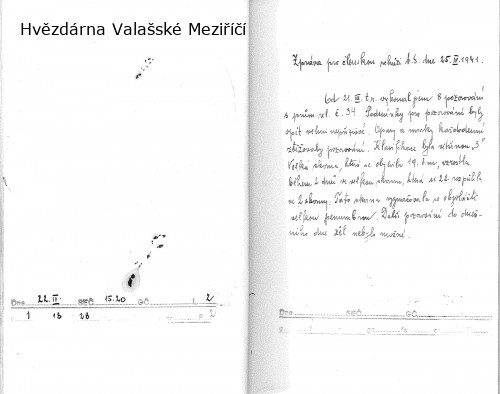 Hvězdárna Valašské Meziříčí
Dne 22. II. SEČ 15.20 GČ L 2
1 18 28 F 2
Zpráva pro členskou schůzi b.S. dne 25. IV. 1941.
Od 21. III. t.r. vykonal jsem 8 pozorování
s prům. rel. č. 34. Podmínky pro pozorování byly
opět velmi nepříznivé. Opary a mraky každodenně
ztěžovaly pozorování. Klasifikace byla většinou "3"
Velká skvrna, která se objevila 19. t.m., vzrostla
během 2 dnů ve velkou skvrnu, která se 22. rozpůlila
ve 2 skvrny. Tato skvrna vyznačovala se obzvláště
velkou penumbrou. Další pozorování do dneš-
ního dne žel nebylo možné.
Dne SEČ GČ